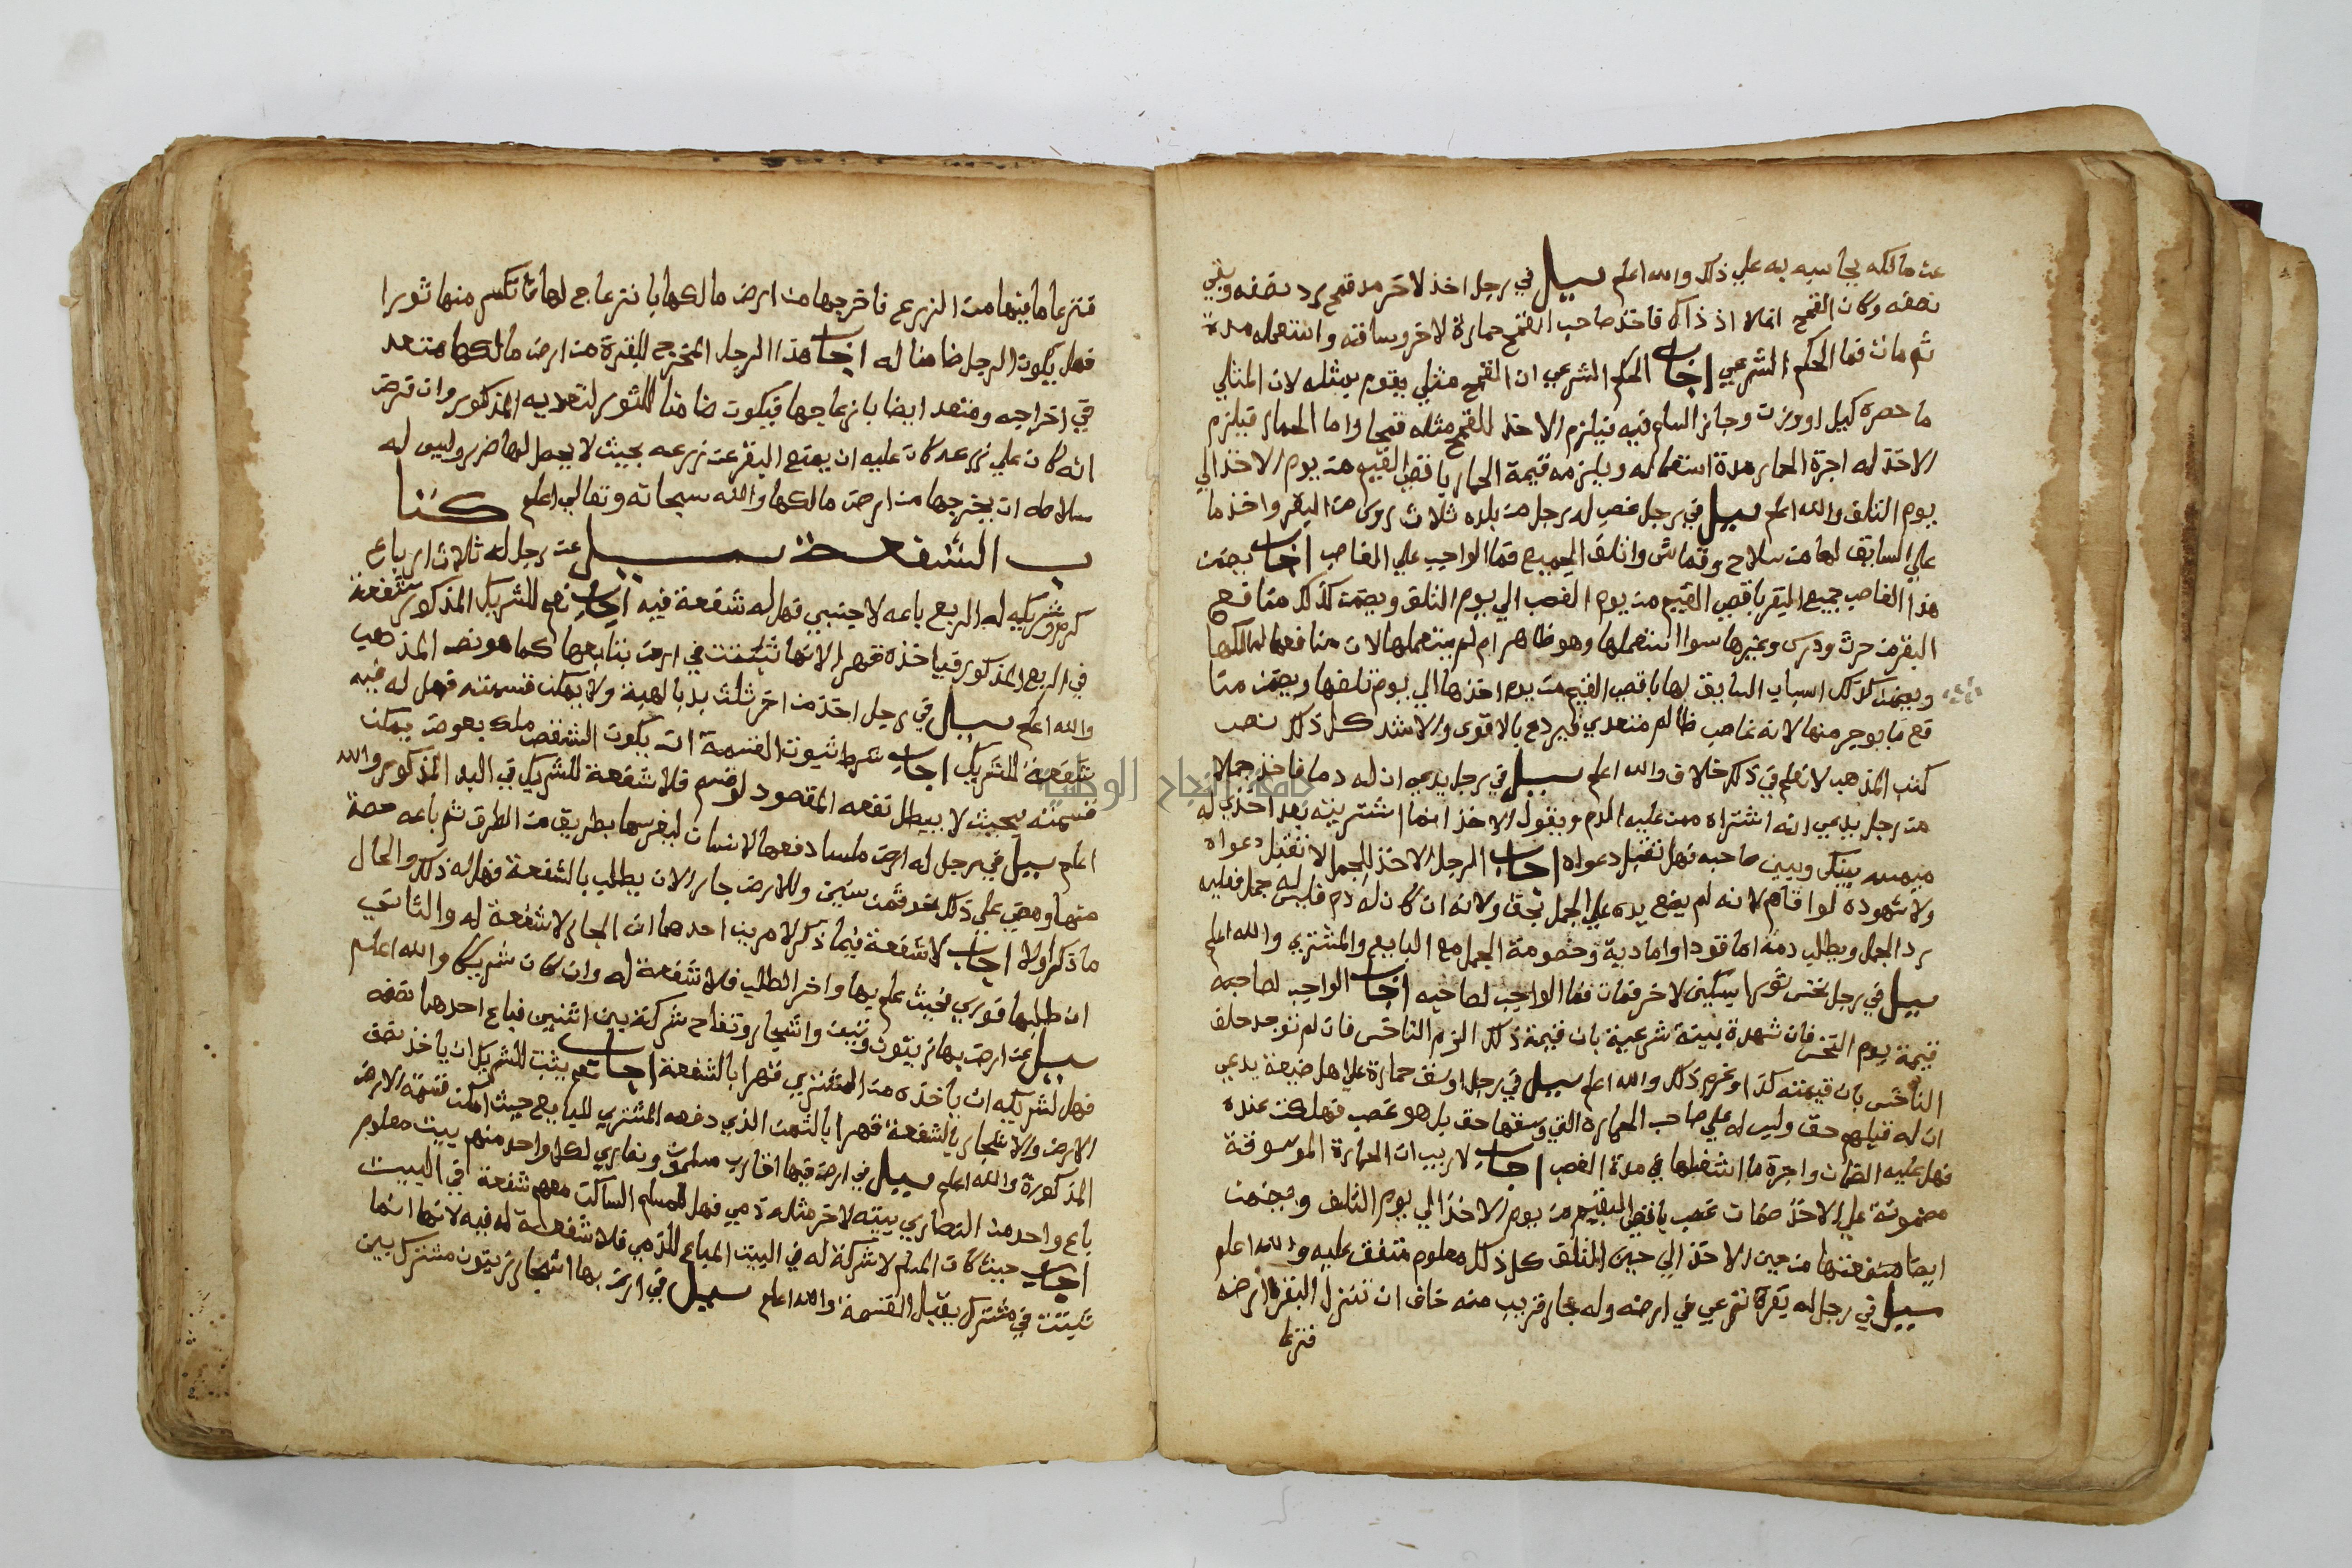 عن مالكه يحاسبه به علي ذلك والله اعلم سيل في رجل اخذ لاخر مد قمح رد نصفه وبقي
نصفه وكان القمح اذ ذاك فاخذ صاحب القمح حمارة لاخر وسافته واستعمله مدة
ثم مات فما الحكم الشرعي اجاب الحكم الشرعي ان القمح مثلي يقوم بمثله لان المثلي
ما حصره كيل او وزن وجاز السلم فيه فيلزم الاخذ للقمح مثله قمحا واما الحمار فيلزم
الاخذ له اجرة الحمار مدة استعماله ويلزمه قيمة الحمار باقصي القيم من يوم الاخذ الي
يوم التلف والله اعلم سيل في رجل غصب له رجل من بلده ثلاث روس من البقر واخذ ما
علي السابق لها من سلاح وقماش واتلف الجميع فما الواجب علي الغاصب اجاب يضمن
هذا الغاصب جميع البقر باقصي القيم من يوم الغصب الي يوم التلف ويضمن كذلك منافع
البقر من حرث ودرس وغيرها سوا استعملها وهو ظاهر ام لم يستعملها لان منافعها لمالكها
ويضمن كذلك اسباب السابق لها باقصي القيم من يوم اخذها الي يوم تلفها ويضمن منا
فع ما يوجر منها لانه غاصب ظالم متعدي فيردع بالاقوي والاشد كل ذلك نص
كتب المذهب لا نعلم في ذلك خلاف والله اعلم سيل في رجل يدعي ان له دما فاخذ جملا
من رجل يدعي انه اشتراه ممن عليه الدم ويقول الاخذ انما اشتريته بعد اخذي له
بينك وبين صاحبه فهل تقبل دعواه اجاب الرجل الاخذ للجمل لا تقبل دعواه
ولا شهوده لو اقام لانه لم يضع يده علي الجمل بحق ولانه ان كان له دم فليس له جمل فعليه
رد الجمل ويطلب دمه اما قودا واما دية وخصومة الجمل مع البايع والمشتري والله اعلم
سيل في رجل نخس ثورا بسكين لاخر فمات فما الواجب لصاحبه اجاب الواجب لصاحبه
قيمة يوم النخس فان شهدة بينة شرعية بان قيمة ذلك الزم الناخس فان لم توجد حلف
الناخس بان قيمته كذا وغرم ذلك والله اعلم سيل في رجل اوسق حمارة علي اهل ضيعة يدعي
ان له قبلهم حق وليس له علي صاحب الحماره التي وسقها حق بل هو غصب فهلكت عنده
فهل عليه الضمان واجرة ما اشتغلها في مدة الغصب اجاب لا ريب ان الحمارة الموسوقة
مضمونة علي الاخذ ضمان غصب باقصي القيم من يوم الاخذ الي يوم التلف ويضمن
ايضا منفعتها من حين الاخذ الي حين التلف كل ذلك معلوم متفق عليه والله اعلم
سيل في رجل له بقرة ترعي في ارضه وله جار قريب منه خاف ان تنزل البقرة ارضه
فنزعا
فنزعا ما فيها من الزرع فاخرجها من ارض مالكها بانزعاج لها فانكسر منها ثورا
فهل يكون الرجل ضامنا له اجاب هذا الرجل المخرج للبقرة من ارض مالكها متعد
في اخراجه ومتعد ايضا بازعاجها فيكون ضامنا للثور لتعديه المذكور وان فرض
انه كان علي زرعه كان عليه ان يمنع البقر عن زرعه بحيث لا يحصل لها ضرر وليس له
سلاطه ان يخرجها من ارض مالكها والله سبحانه وتعالي اعلم كتا
ب الشفعة سيل عن رجل له ثلاث ارباع
كرم وشريكه له الربع باعه لاجنبي فهل له شفعة فيه اجاب نعم للشريك المذكور شفعة
في الربع المذكور فياخذه قهرا لانها تثبت في ارض بتابعها كما هو نص المذهب
والله اعلم سيل في رجل اخذ من اخر ثلث بد بالهبة ولا يمكن قسمته فهل له فيه
شفعة للشريك اجاب شرط ثبوت القسمة ان يكون الشقص ملك بعوض يمكن
قسمته بحيث لا يبطل نفعه المقصود لو قسم فلا شفعة للشريك في البد المذكور والله
اعلم سيل في رجل له ارض ملسا دفعها لانسان ليغرسها بطريق من الطرق ثم باعه حصة
منها ومضي علي ذلك نحو ثمن سنين وللارض جار الان يطلب بالشفعة فهل له ذلك والحال
ما ذكر اولا اجاب لا شفعة فيما ذكر لامرين احدهما ان الجار لا شفعة له والثاني
ان طلبها فوري فحيث علم بها واخر الطلب فلا شفعة له وان كان شريكا والله اعلم
سيل عن ارض بها زيتون وتين واشجار وتفاح شركة بين اثنين فباع احدهما نصفه
فهل لشريكه ان ياخذه من المشتري قهرا بالشفعة اجاب نعم يثبت للشريك ان ياخذ نصف
الارض والاشجار بالشفعة قهرا بالثمن الذي دفعه المشتري للبايع حيث امكن قسمة الارض
المذكورة والله اعلم سيل في ارض فيها اقارب مسلمون ونصاري لكل واحد منهم بيت معلوم
باع واحد من النصاري بيته لاخر مثله ذمي فهل للمسلم الساكن معهم شفعة في البيت
اجاب حيث كان المسلم لا شركة له في البيت المباع للذمي فلا شفعة له فيه لانها انما
تثبت في مشترك يقبل القسمة والله اعلم سيل في ارض بها اشجار زيتون مشترك بين
جامعة النجاح الوطنية